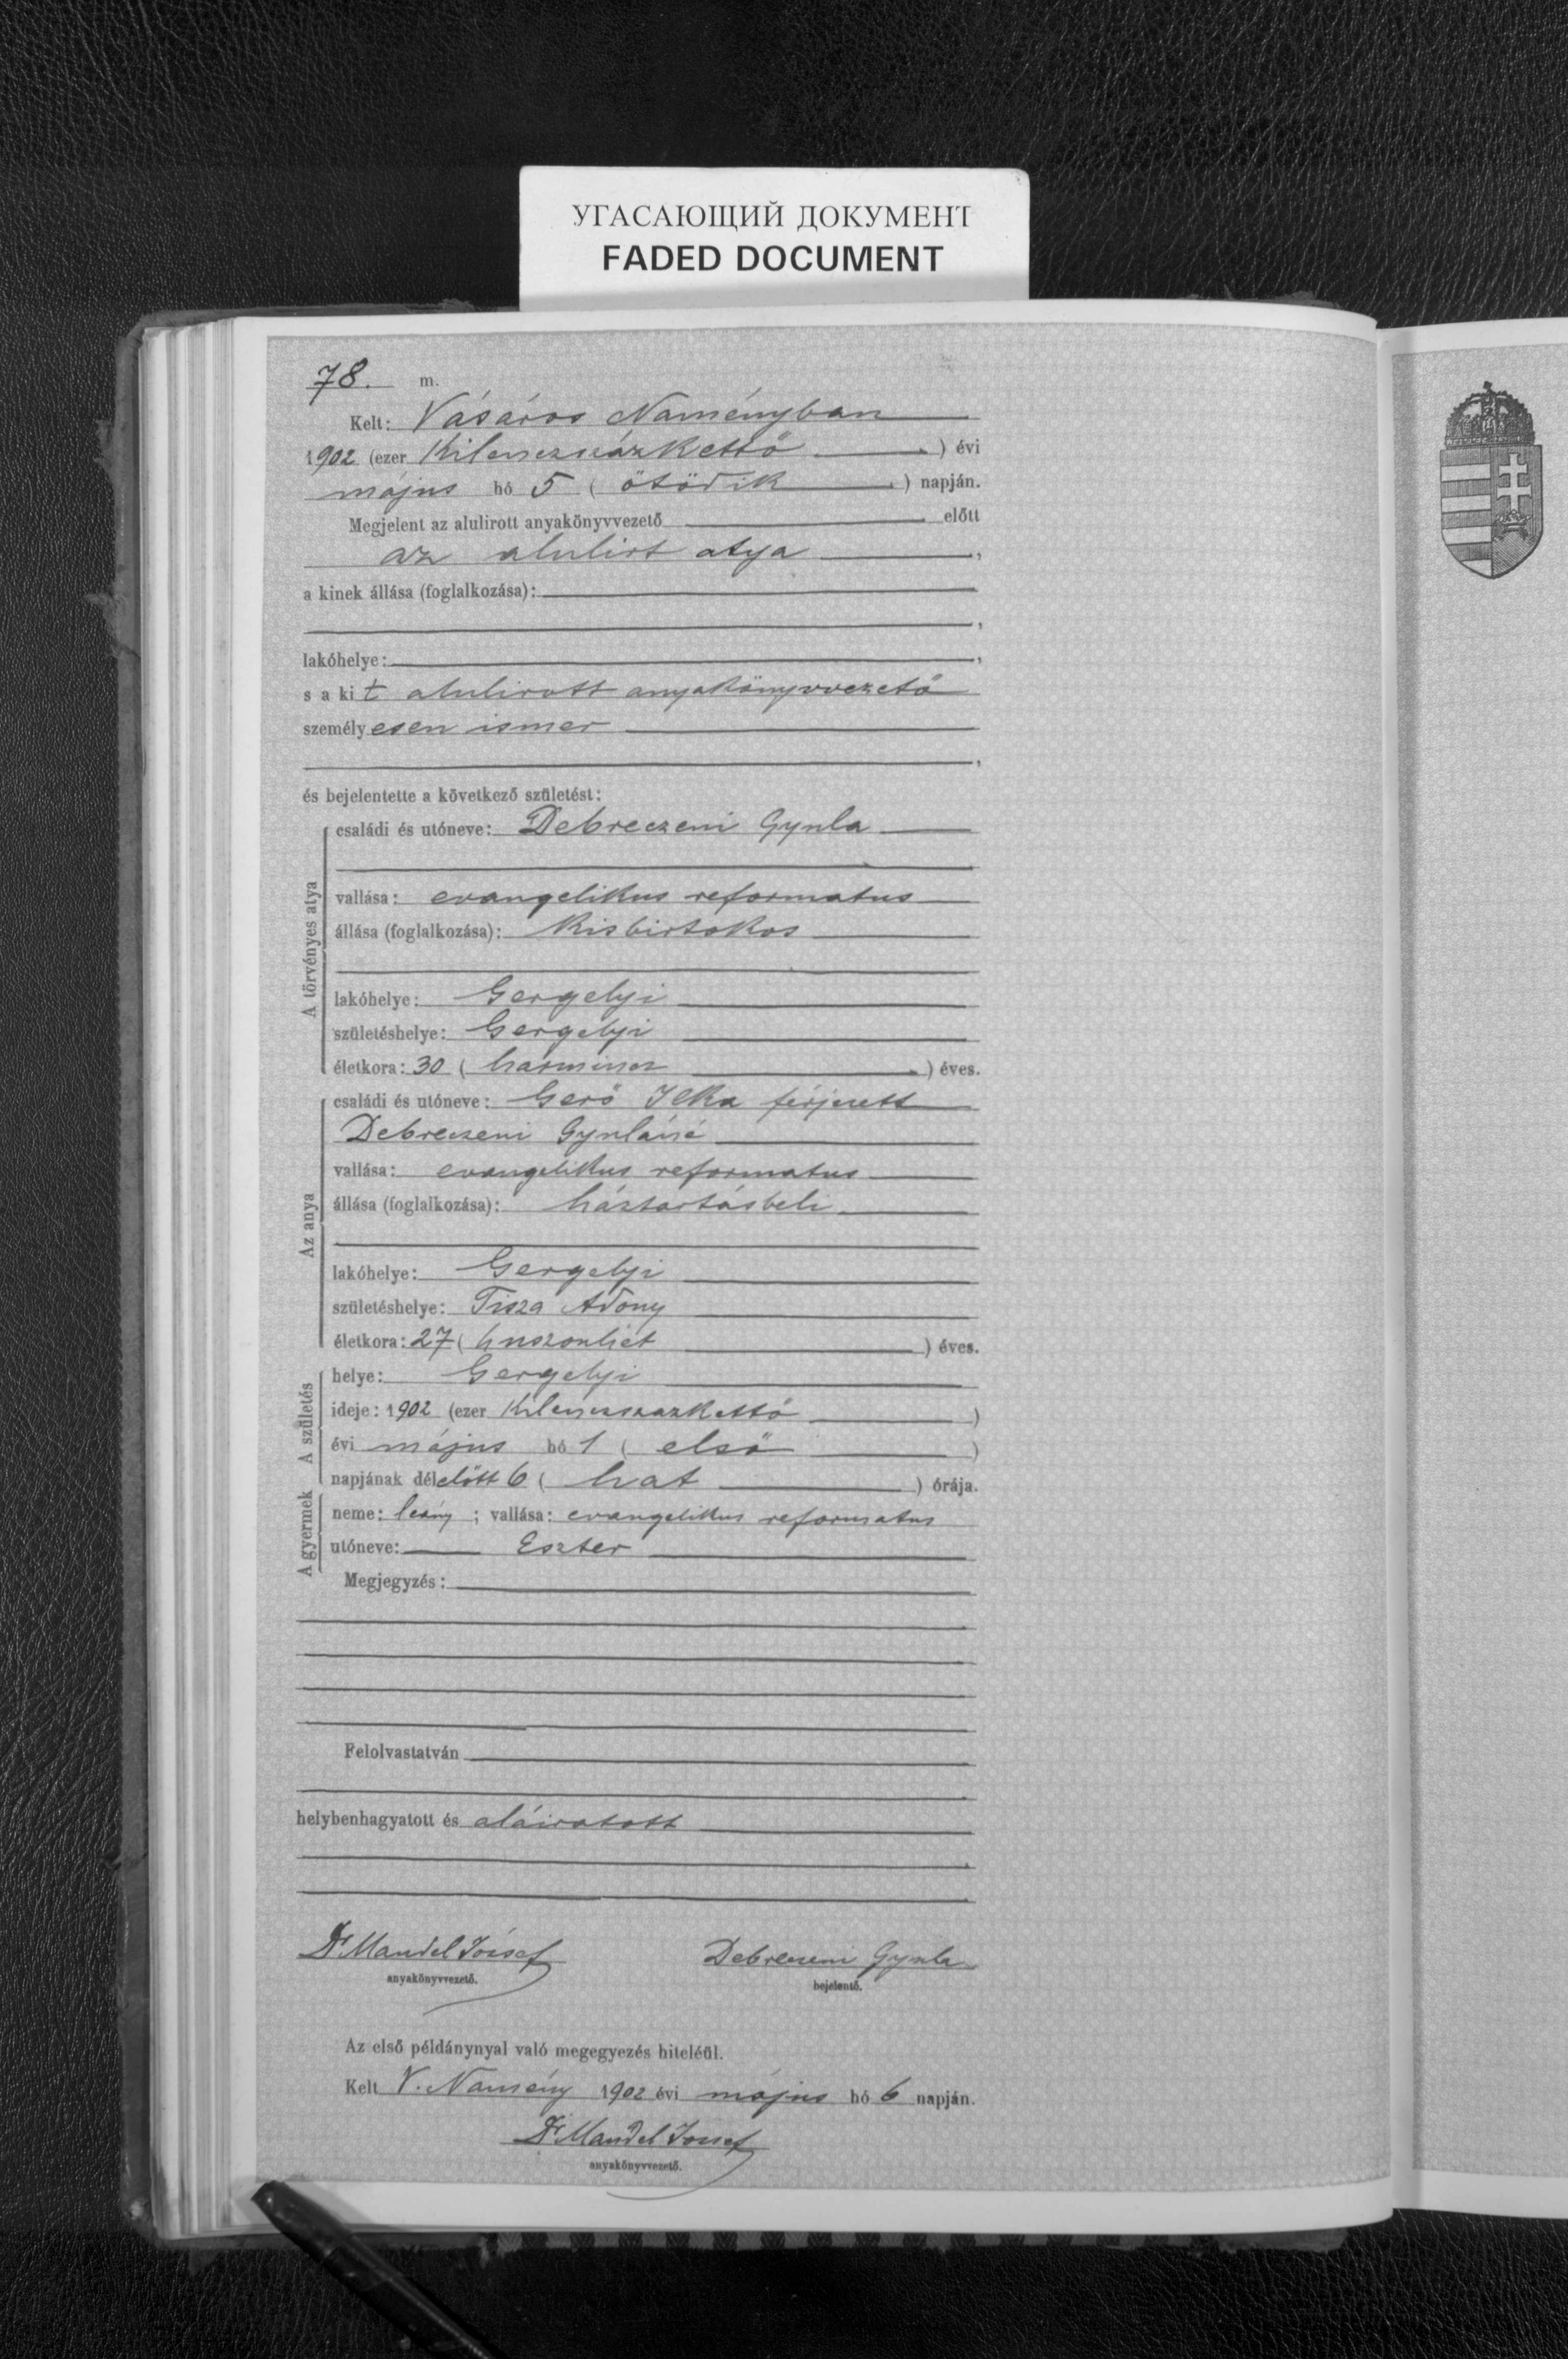 УГАСАЮЩИЙ ДОКУМЕНТ
FADED DOCUMENT
78. m.
Kelt: Vásáros Naményban
1902 (ezer Kilenczszázkettő) évi
május hó 5 (ötödik) napján.
Megjelent az alulirott anyakönyvvezető előtt
az alulirt atya,
a kinek állása (foglalkozása):
,
lakóhelye: ,
s a kit alulirott anyakönyvvezető
személyesen ismer
,
és bejelentette a következő születést:
A törvényes atya
családi és utóneve: Debreczeni Gyula
vallása: evangelikus reformatus
állása (foglalkozása): Kisbirtokos
lakóhelye: Gergelyi
születéshelye: Gergelyi
életkora: 30 (harmincz) éves.
Az anya
családi és utóneve: Gerő Ilka férjezett
Debreczeni Gyuláné
vallása: evangelikus reformatus
állása (foglalkozása): háztartásbeli
lakóhelye: Gergelyi
születéshelye: Tisza Adony
életkora: 27 (huszonhét) éves.
A születés
helye: Gergelyi
ideje: 1902 (ezer Kilenczszázkettő)
évi május hó 1 (első)
napjának délelőtt 6 (hat) órája.
A gyermek
neme: leány; vallása: evangelikus reformatus
utóneve: Eszter
Megjegyzés:
Felolvastatván
helybenhagyatott és aláiratott
Dr Mandel József Debreczeni Gyula
anyakönyvvezető. bejelentő.
Az első példánynyal való megegyezés hiteléül.
Kelt V. Namény 1902 évi május hó 6 napján.
Dr Mandel József
anyakönyvvezető.